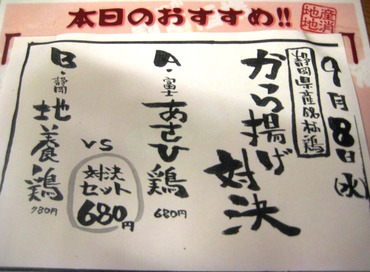 本日のおすすめ!!
地産地消
9月8日(水)
静岡県産銘柄鶏
から揚げ対決
A・富士あさひ鶏
680円
VS
対決セット
680円
B・静岡地養鶏
780円